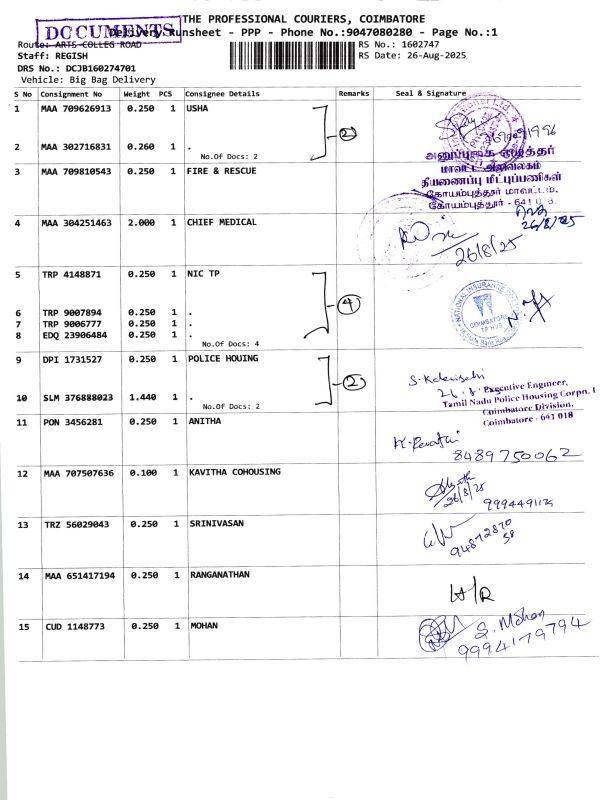 THE PROFESSIONAL COURIERS, COIMBATORE
DOCUMENTS
Delivery Runsheet - PPP - Phone No.:9047080280 - Page No.:1
Route: ARTS COLLEG ROAD
RS No.: 1602747
Staff: REGISH
RS Date: 26-Aug-2025
DRS No.: DCJB160274701
Vehicle: Big Bag Delivery
S No Consignment No Weight PCS Consignee Details Remarks Seal & Signature
1 MAA 709626913 0.250 1 USHA
2
2 MAA 302716831 0.260 1 .
No.Of Docs: 2
அனுப்புகை எழுத்தர்
3 MAA 709810543 0.250 1 FIRE & RESCUE
மாவட்ட அலுவலகம்
தீயணைப்பு மீட்புப்பணிகள்
கோயம்புத்தூர் மாவட்டம்.
கோயம்புத்தூர் - 641 018.
26/8/25
4 MAA 304251463 2.000 1 CHIEF MEDICAL
26/8/25
5 TRP 4148871 0.250 1 NIC TP
4
NATIONAL INSURANCE
COIMBATORE
TP HUB
6 TRP 9007894 0.250 1 .
7 TRP 9006777 0.250 1 .
8 EDQ 23906484 0.250 1 .
No.Of Docs: 4
9 DPI 1731527 0.250 1 POLICE HOUING
2
Executive Engineer,
Tamil Nadu Police Housing Corpn.
Coimbatore Division,
Coimbatore - 641 018
10 SLM 376888023 1.440 1 .
No.Of Docs: 2
11 PON 3456281 0.250 1 ANITHA
K. Revathi
8489750062
12 MAA 707507636 0.100 1 KAVITHA COHOUSING
26/8/25
13 TRZ 56029043 0.250 1 SRINIVASAN
14 MAA 651417194 0.250 1 RANGANATHAN
H/R
15 CUD 1148773 0.250 1 MOHAN
S. Mohan
9994179794